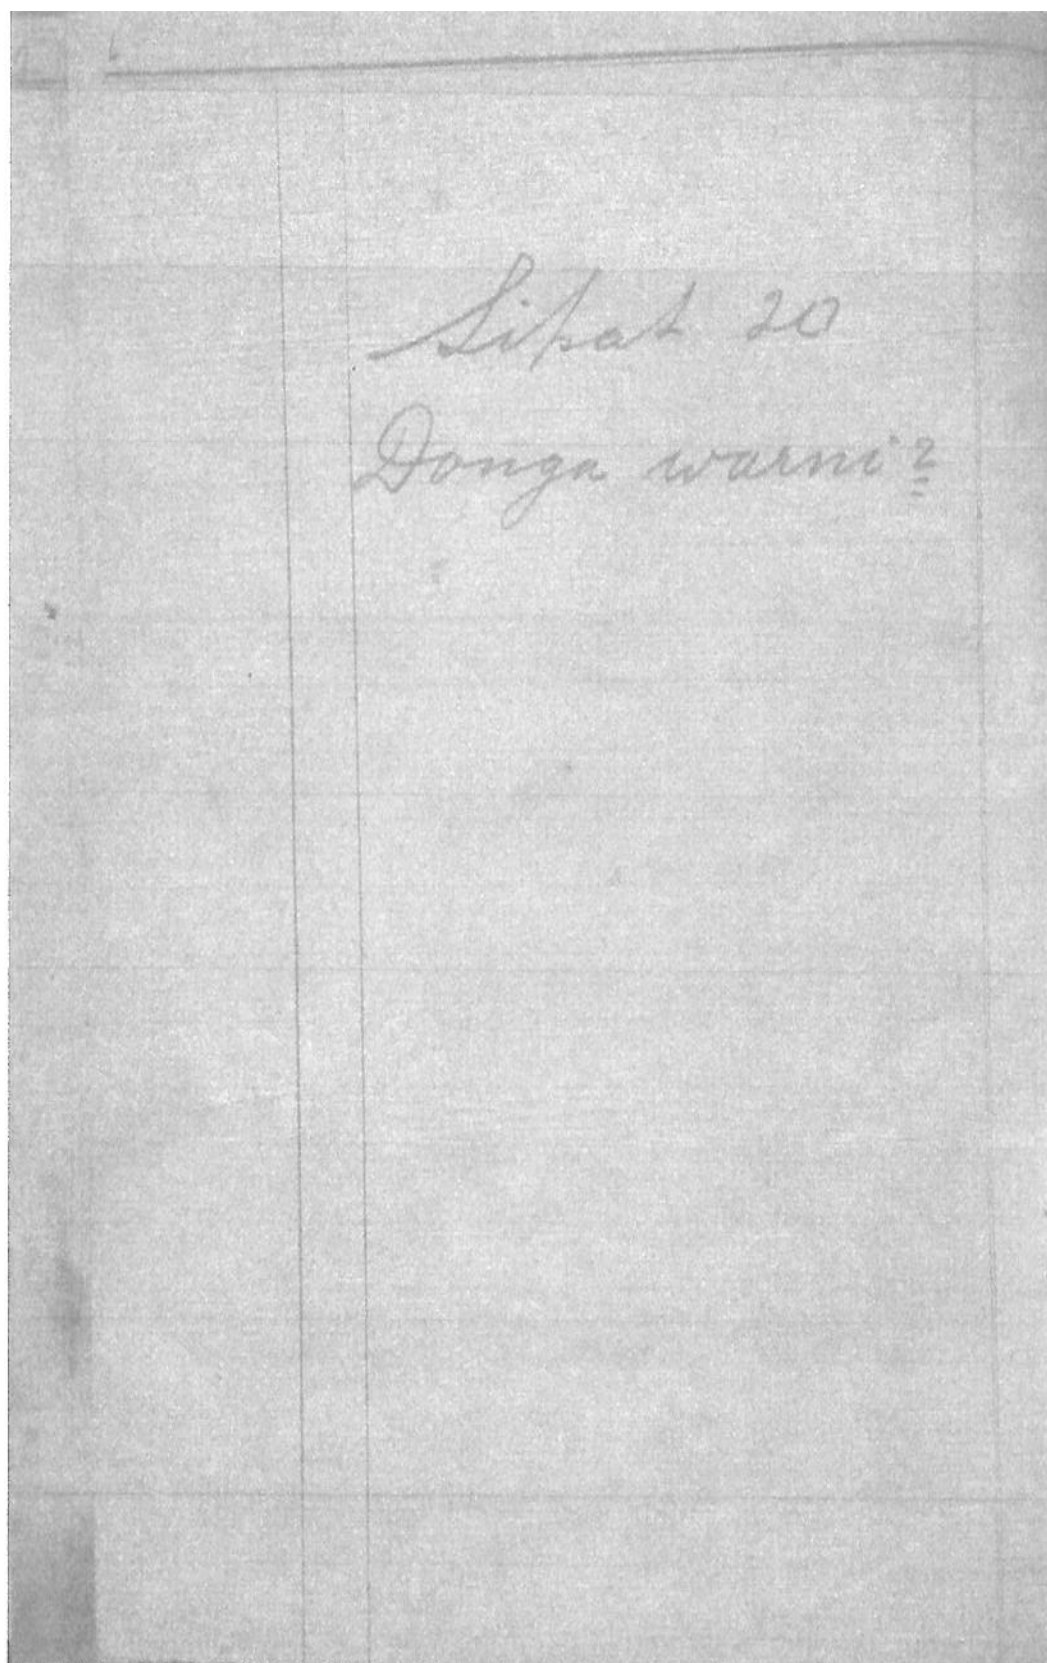 Sipat 20
Donga warni 2